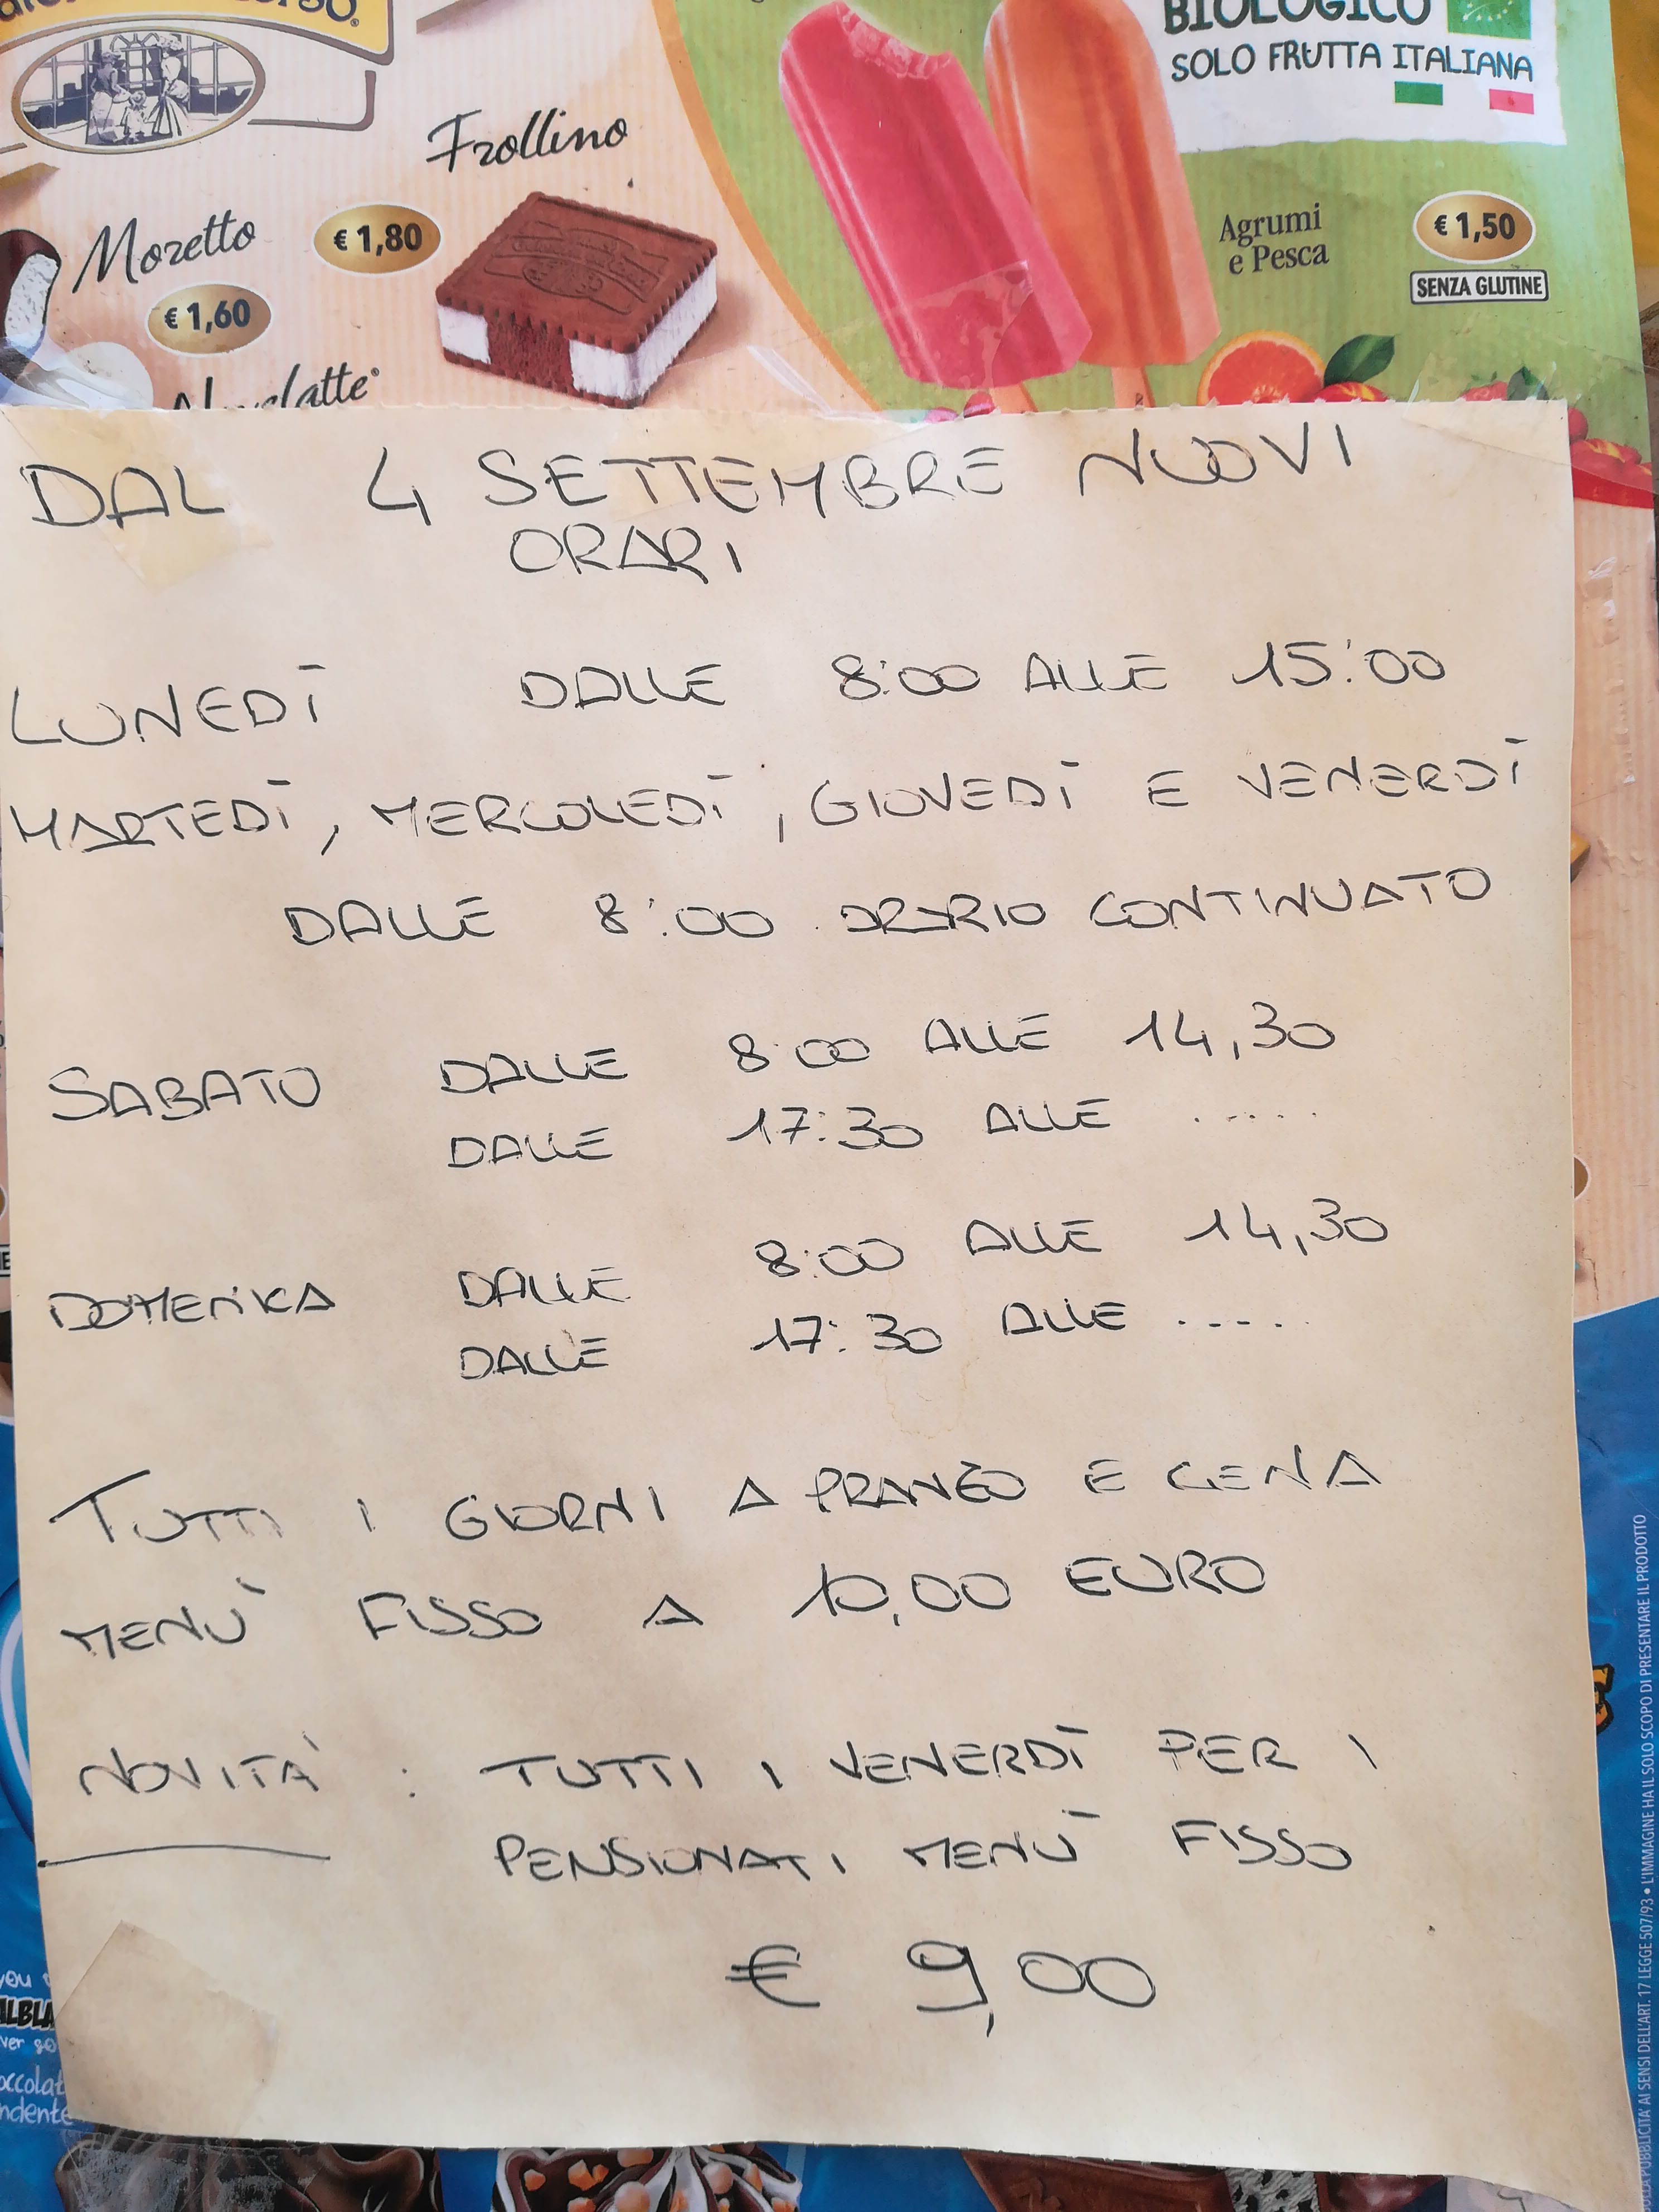 BIOLOGICO
SOLO FRUTTA ITALIANA
Frollino
Moretto
€ 1,80
€ 1,60
Agrumi
e Pesca
€ 1,50
SENZA GLUTINE
DAL 4 SETTEMBRE NUOVI
ORARI
LUNEDÌ DALLE 8:00 ALLE 15:00
MARTEDÌ, MERCOLEDÌ, GIOVEDÌ E VENERDÌ
DALLE 8:00 ORARIO CONTINUATO
SABATO DALLE 8:00 ALLE 14,30
DALLE 17:30 ALLE .....
DOMENICA DALLE 8:00 ALLE 14,30
DALLE 17:30 ALLE .....
TUTTI I GIORNI A PRANZO E CENA
MENÙ FISSO A 10,00 EURO
NOVITÀ : TUTTI I VENERDÌ PER I
PENSIONATI MENÙ FISSO
€ 9,00
you
ALBLA
ver so
occolat
ndente
PUBBLICITA' AI SENSI DELL'ART. 17 LEGGE 507/93 • L'IMMAGINE HA IL SOLO SCOPO DI PRESENTARE IL PRODOTTO